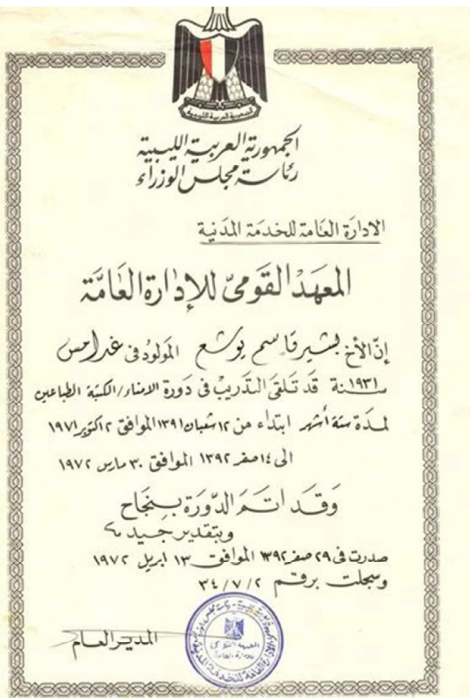 الجمهورية العربية الليبية
الجمهورية العربية الليبية
رئاسة مجلس الوزراء
الادارة العامة للخدمة المدنية
المعهد القومى للإدارة العامة
إن الأخ بشير قاسم يوشع المولود فى غدامس
سنة ١٩٣١ قد تلقى التدريب فى دورة الامناء/الكتبة الطباعين
لمدة ستة أشهر ابتداء من ١٢ شعبان ١٣٩١ الموافق ٢ اكتوبر ١٩٧١
الى ١٤ صفر ١٣٩٢ الموافق ٣٠ مارس ١٩٧٢
وقد اتم الدورة بنجاح
وبتقدير جيد
صدرت فى ٢٩ صفر ١٣٩٢ الموافق ١٣ ابريل ١٩٧٢
وسجلت برقم ٣٤/٧/٢
المدير العام